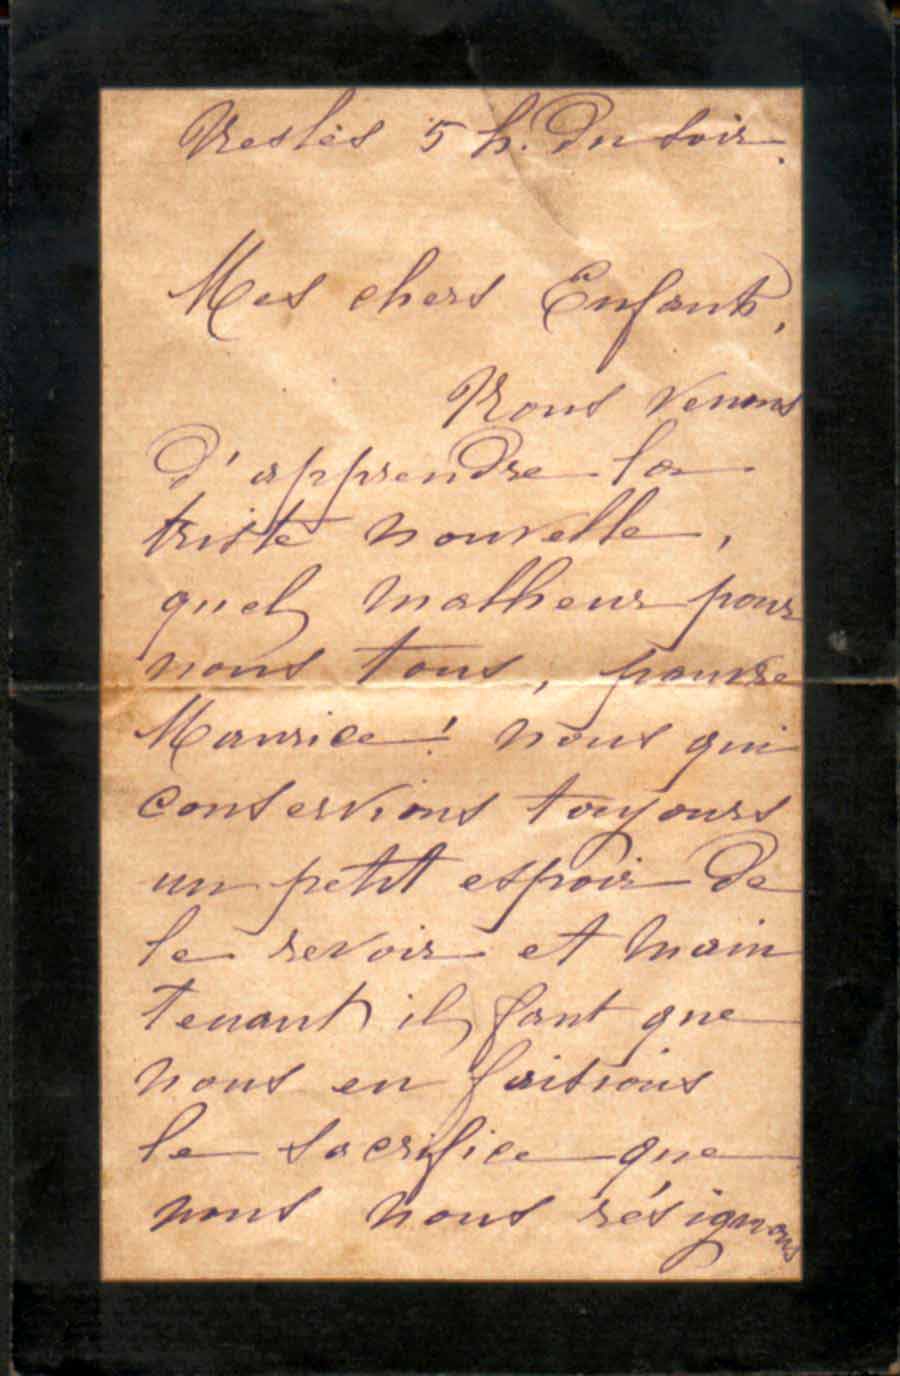 Nesles 5 h. du soir.
Mes chers Enfants,
Nous venons
d'apprendre la
triste nouvelle,
quel malheur pour
nous tous, pauvre
Maurice! nous qui
conservions toujours
un petit espoir de
le revoir et main
tenant il faut que
nous en faisions
le sacrifice que
nous nous résignons